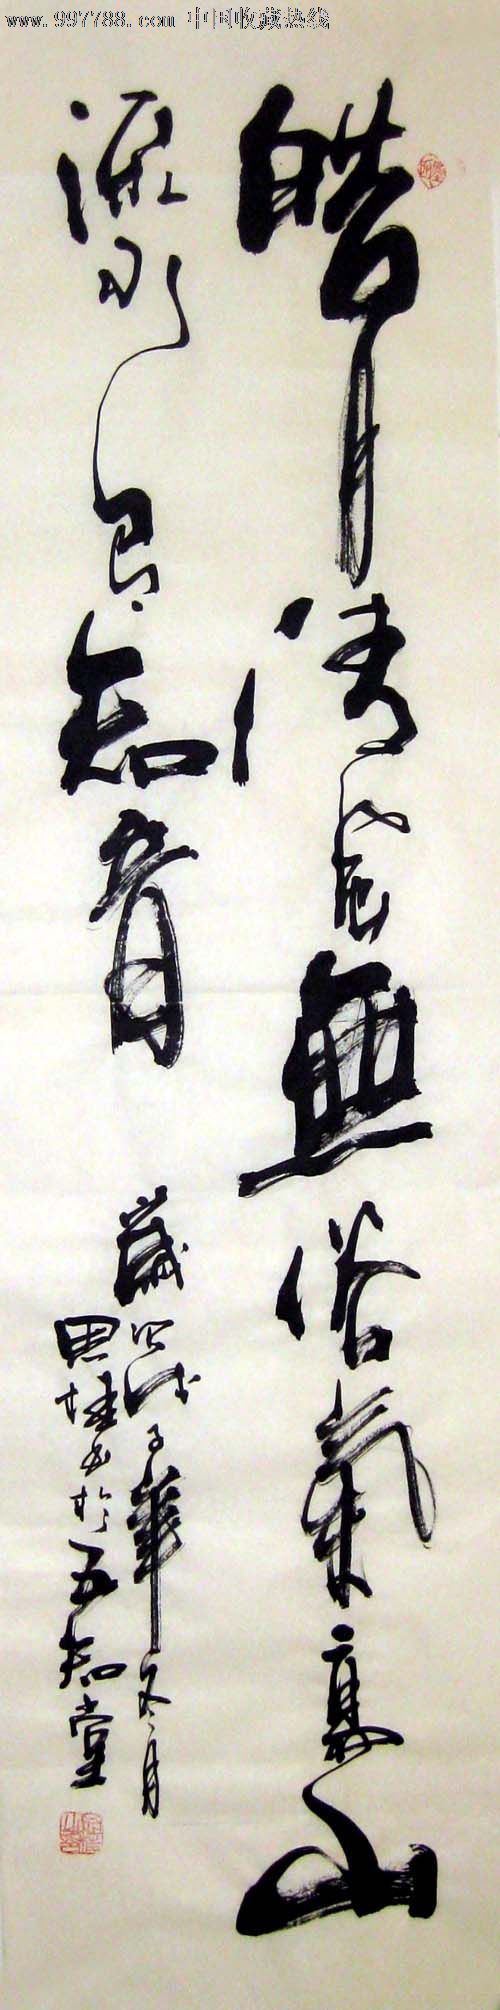 www.997788.com 中国收藏热线
皓月清风無俗氣高山
流水有知音
歲次戊子年冬月
思
書於五知堂